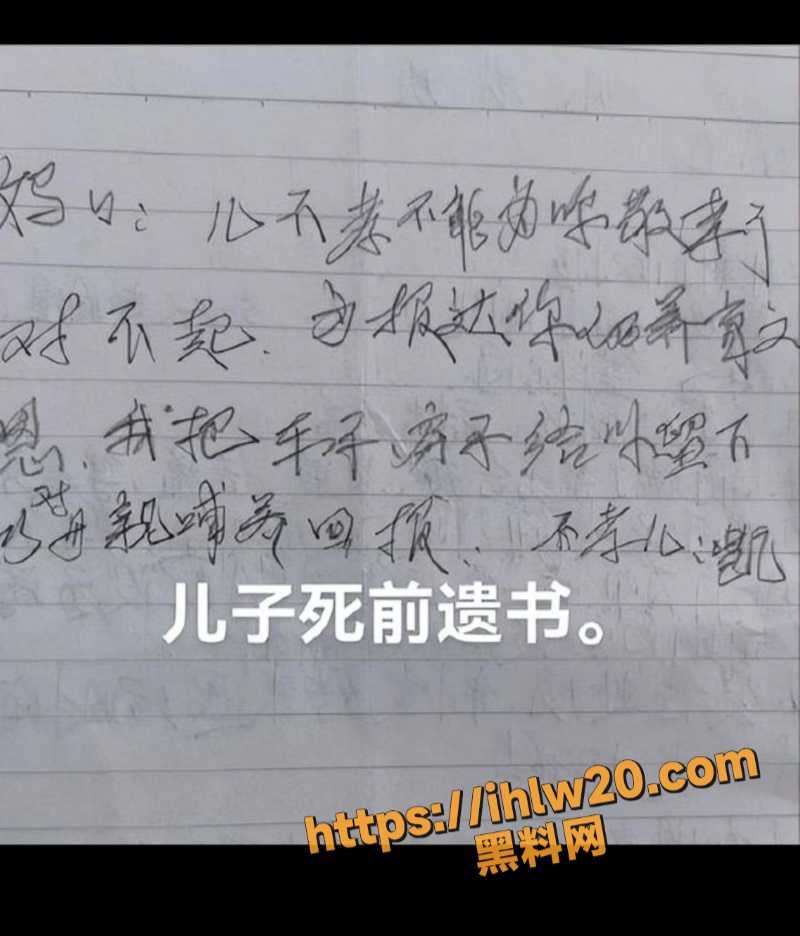 妈妈:儿不孝不能为你敬孝了
对不起.为报达你的养育之
恩.我把车子、房子给你留下
对母亲哺养回报.不孝儿:凯
儿子死前遗书。
https://ihlw20.com
黑料网